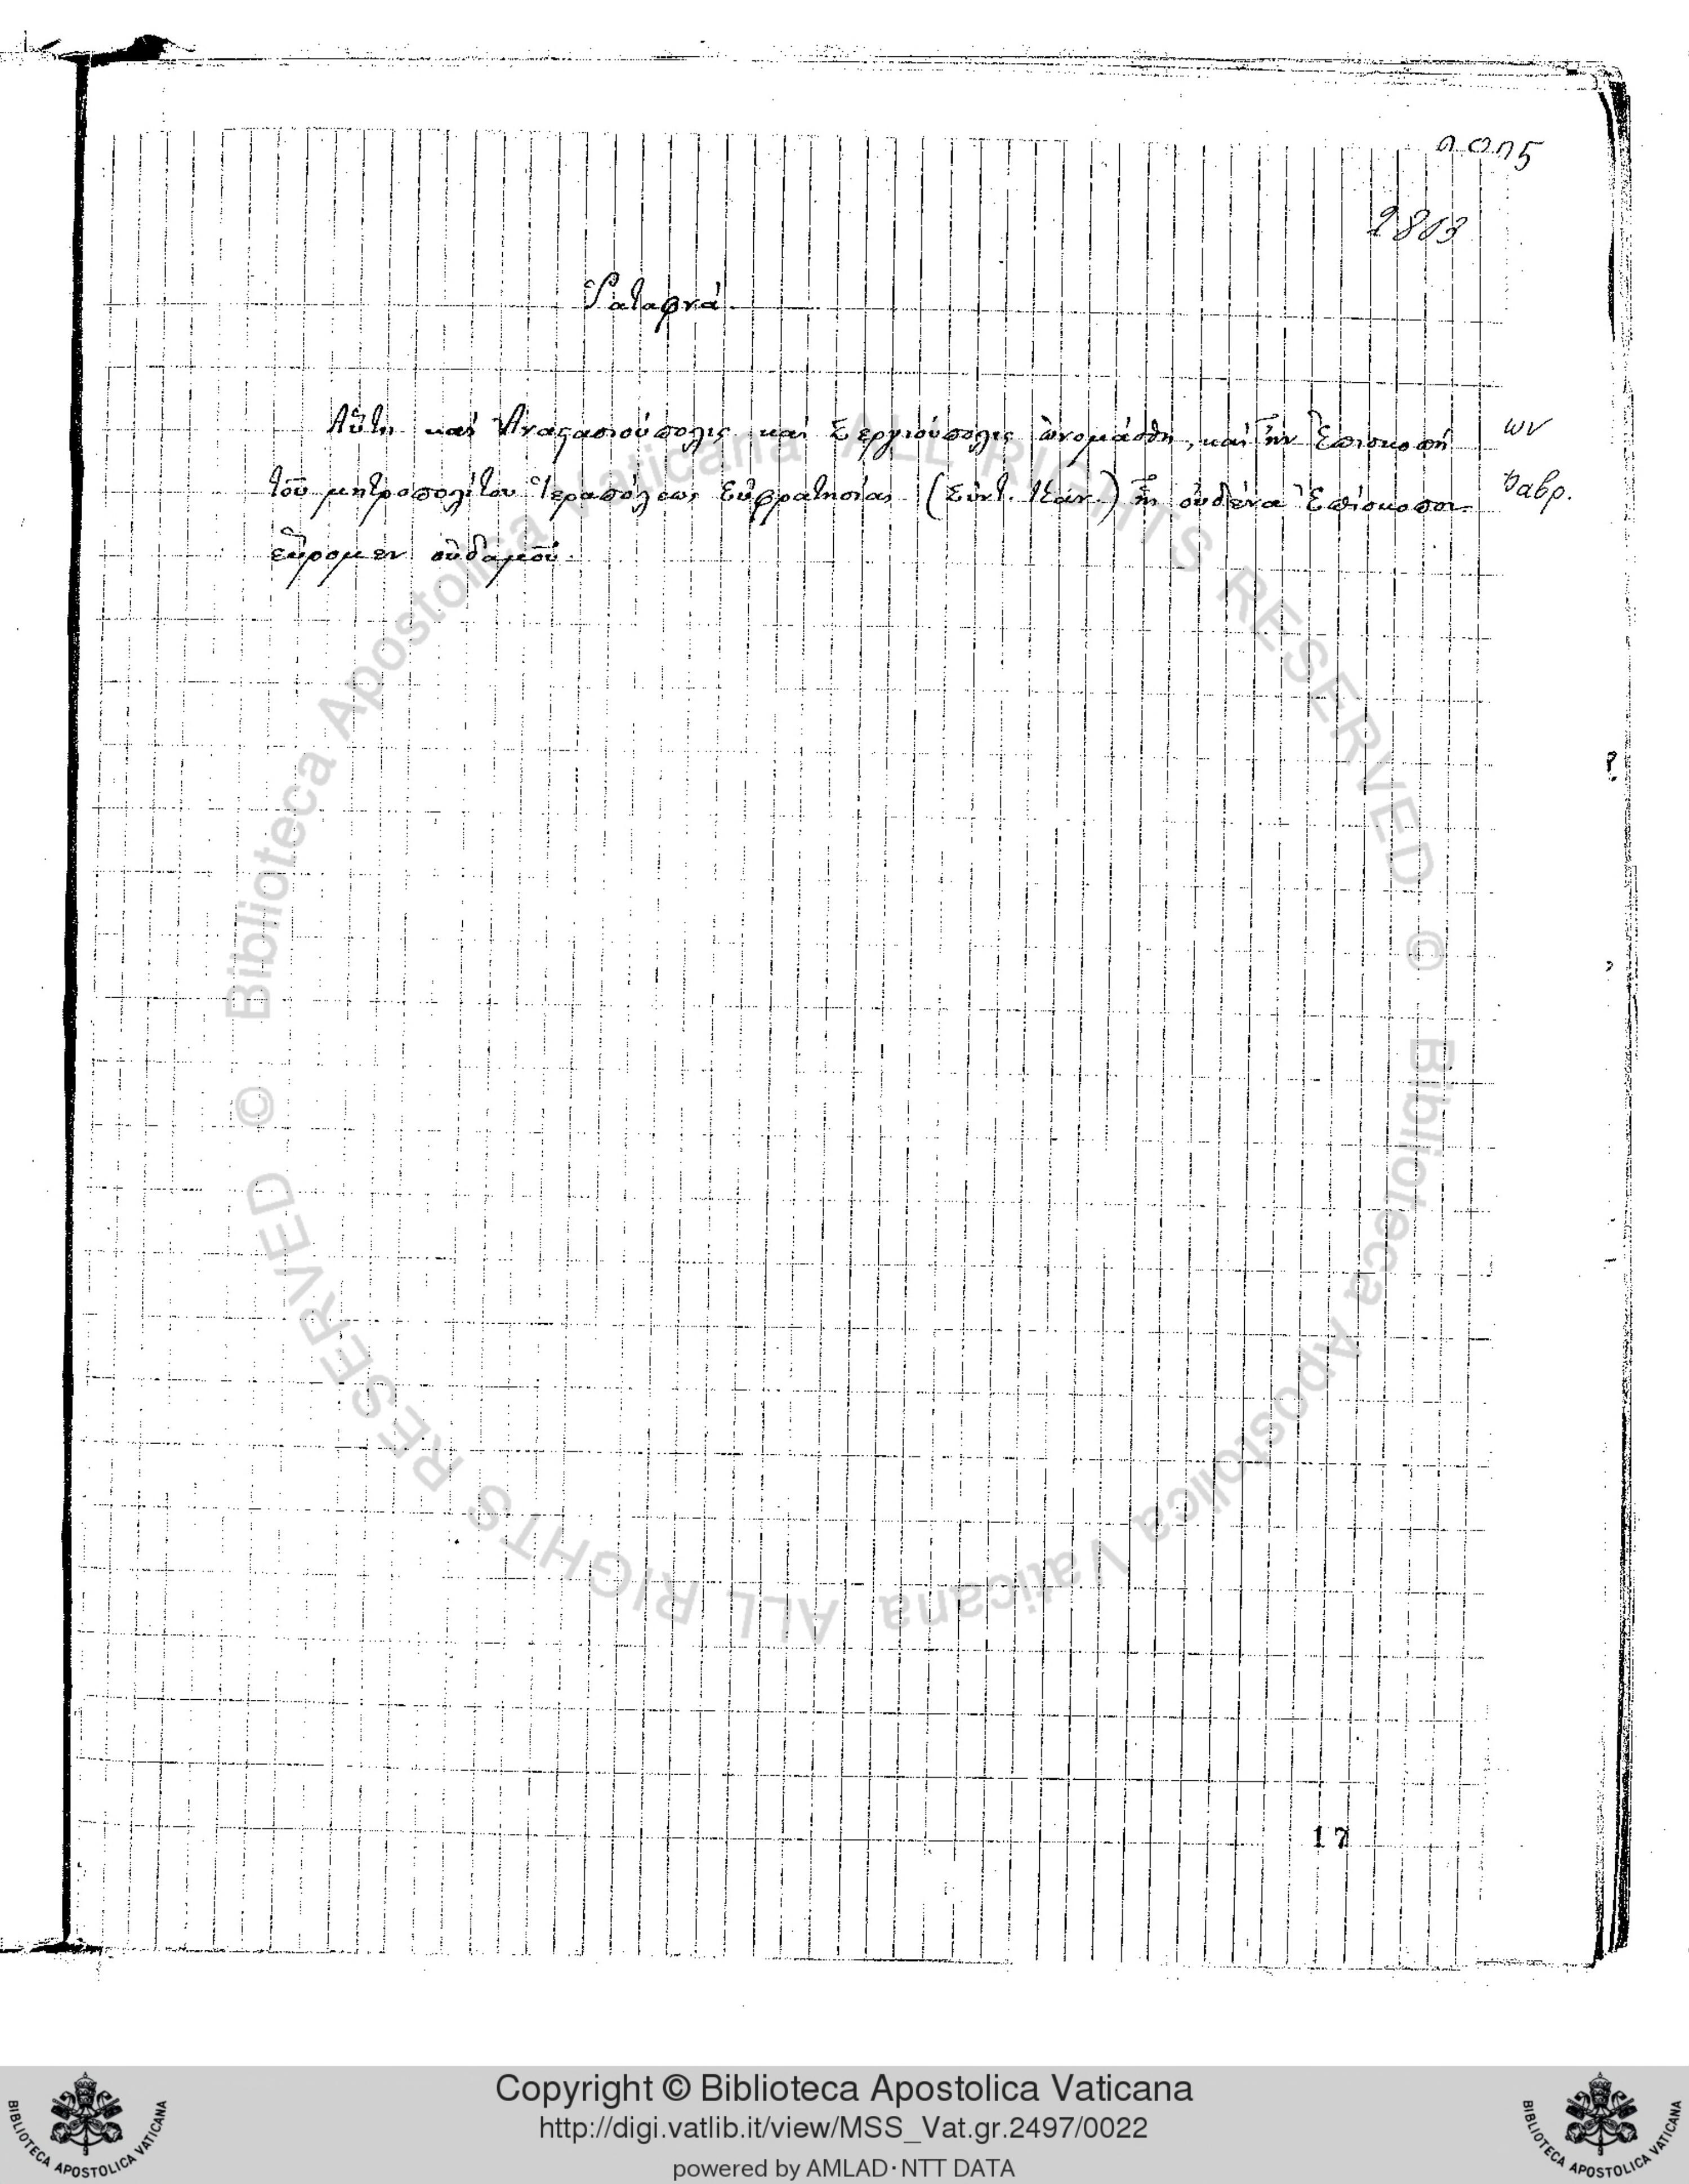 2813
Ῥαταφνά.
Αὕτη καὶ Ἀναστασιούπολις καὶ Σεργιούπολις ὠνομάσθη, καὶ ἦν Ἐπισκοπή
τοῦ μητροπολίτου Ἱεραπόλεως Εὐφρατησίας (Σύντ. Κάν.) ἧς οὐδένα Ἐπίσκοπον
εὕρομεν οὐδαμοῦ.
ων
17
© Biblioteca Apostolica Vaticana ALL RIGHTS RESERVED © Biblioteca Apostolica Vaticana ALL RIGHTS RESERVED
Copyright © Biblioteca Apostolica Vaticana
http://digi.vatlib.it/view/MSS_Vat.gr.2497/0022
powered by AMLAD·NTT DATA
BIBLIOTECA APOSTOLICA VATICANA
BIBLIOTECA APOSTOLICA VATICANA